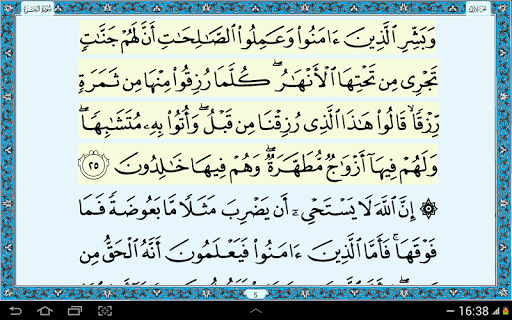 سورة البقرة
الجزء الأول
وَبَشِّرِ ٱلَّذِينَ ءَامَنُوا۟ وَعَمِلُوا۟ ٱلصَّـٰلِحَـٰتِ أَنَّ لَهُمْ جَنَّـٰتٍ
تَجْرِى مِن تَحْتِهَا ٱلْأَنْهَـٰرُ ۖ كُلَّمَا رُزِقُوا۟ مِنْهَا مِن ثَمَرَةٍ
رِّزْقًا ۙ قَالُوا۟ هَـٰذَا ٱلَّذِى رُزِقْنَا مِن قَبْلُ ۖ وَأُتُوا۟ بِهِۦ مُتَشَـٰبِهًا ۖ
وَلَهُمْ فِيهَآ أَزْوَٰجٌ مُّطَهَّرَةٌ ۖ وَهُمْ فِيهَا خَـٰلِدُونَ ٢٥
۞ إِنَّ ٱللَّهَ لَا يَسْتَحْىِۦٓ أَن يَضْرِبَ مَثَلًا مَّا بَعُوضَةً فَمَا
فَوْقَهَا ۚ فَأَمَّا ٱلَّذِينَ ءَامَنُوا۟ فَيَعْلَمُونَ أَنَّهُ ٱلْحَقُّ مِن
5
16:38